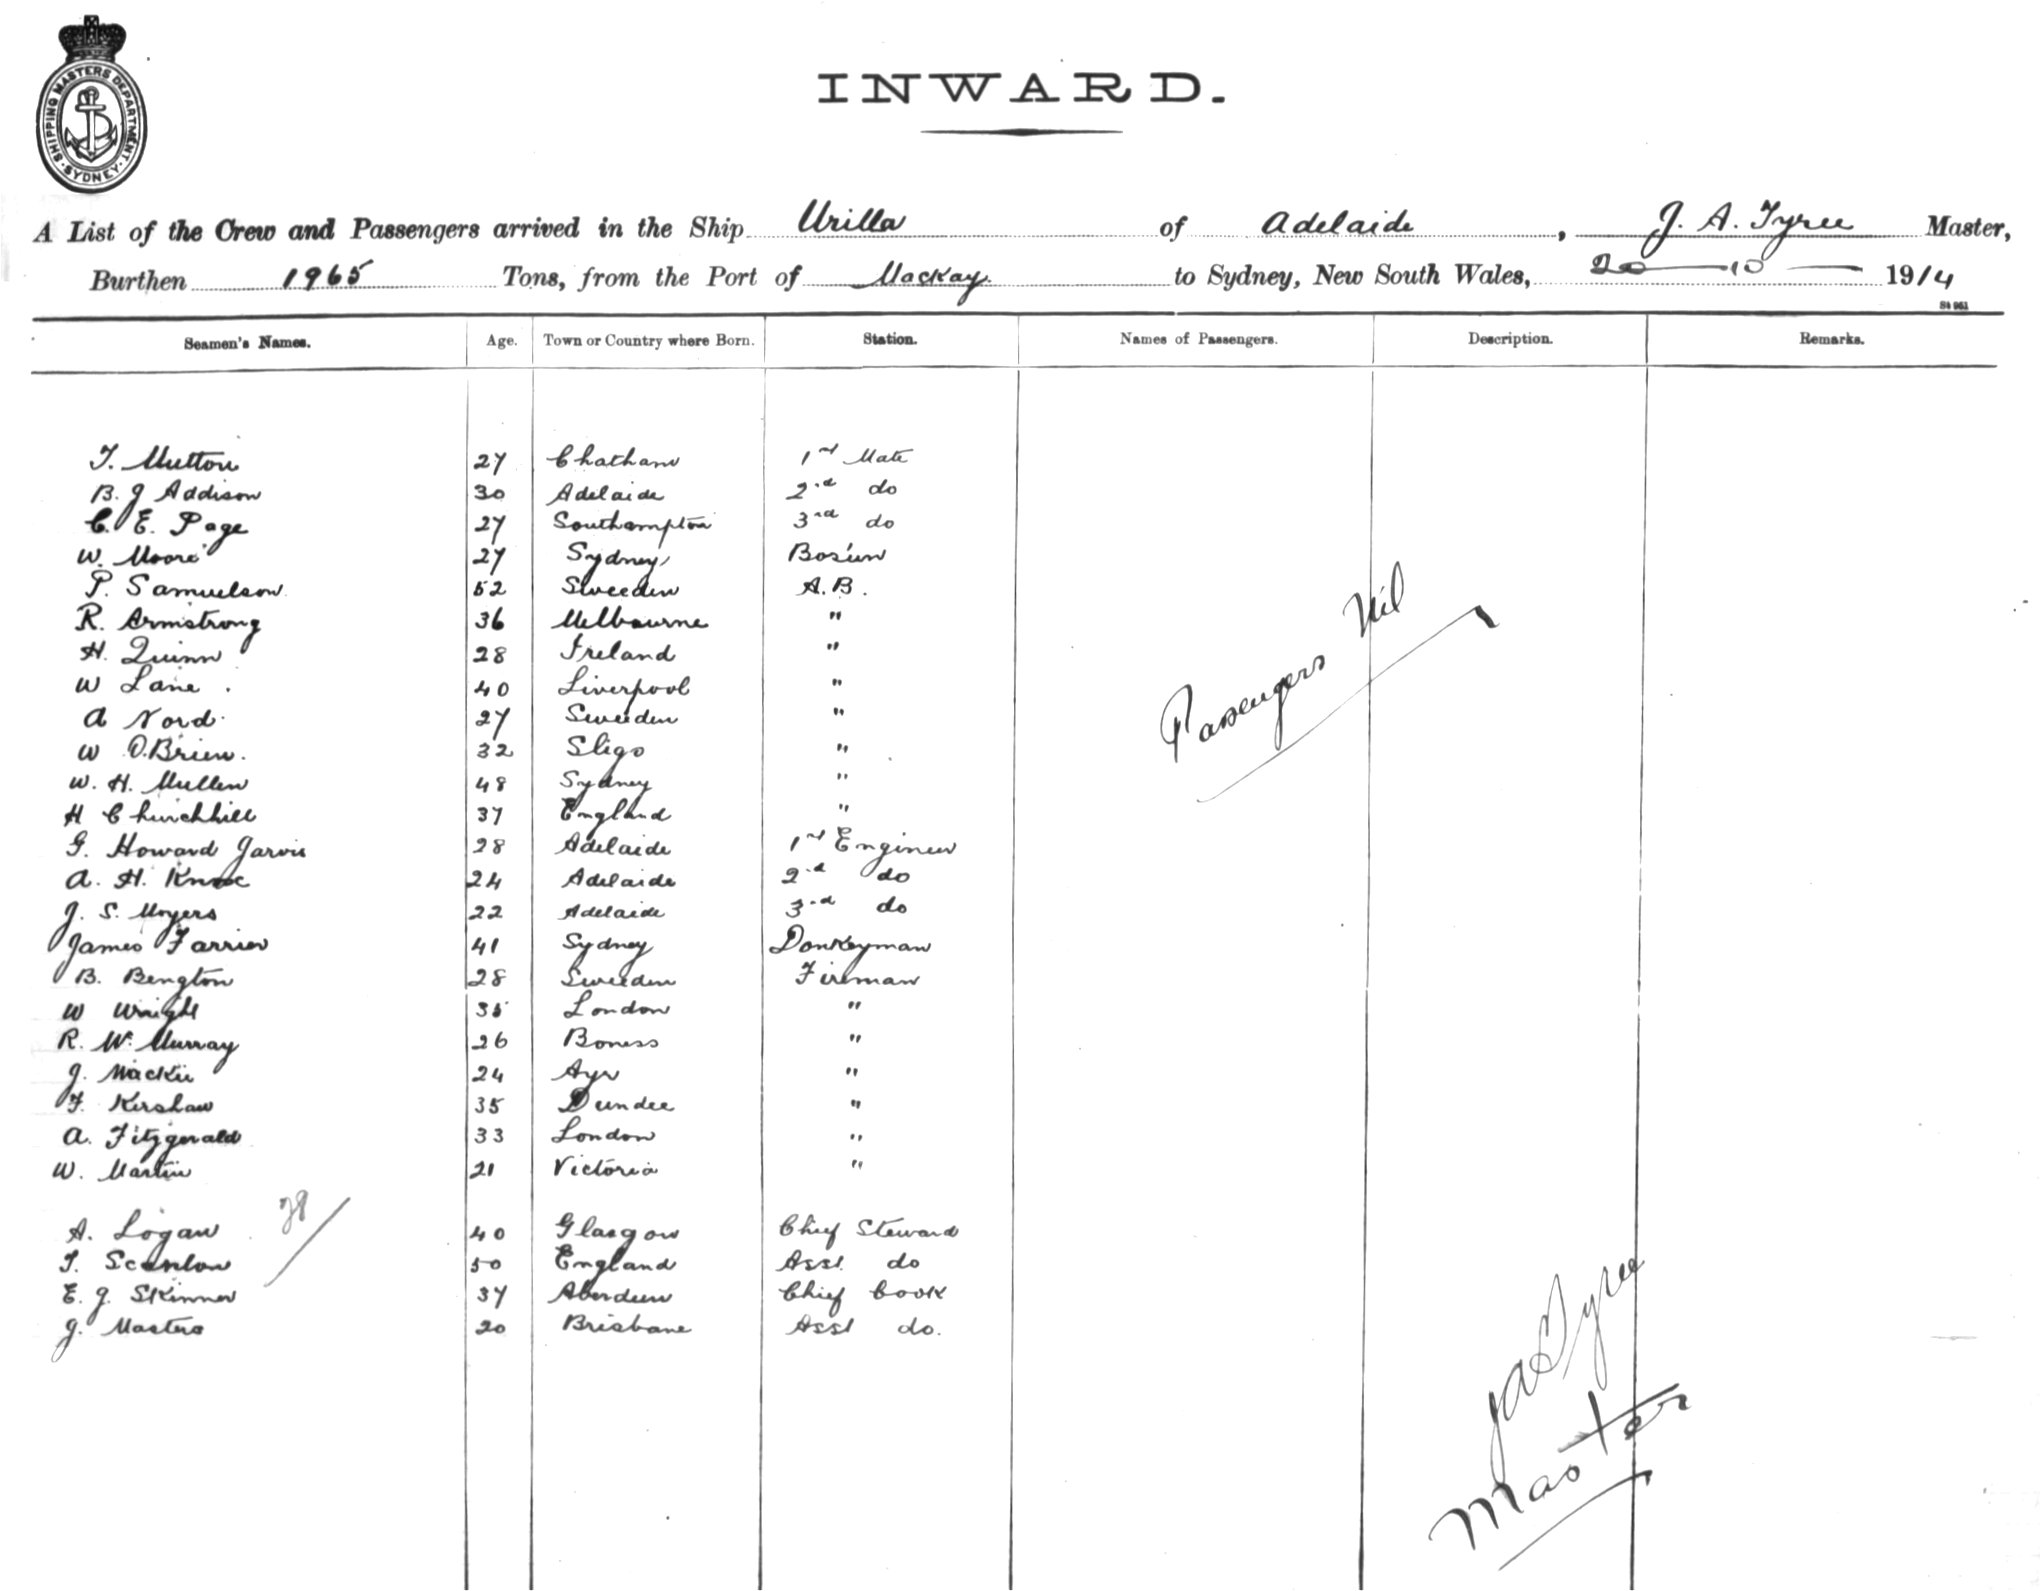 SHIPPING MASTERS DEPARTMENT. SYDNEY.
INWARD.
A List of the Crew and Passengers arrived in the Ship Urilla of Adelaide, J. A. Tyree Master,
Burthen 1965 Tons, from the Port of Mackay. to Sydney, New South Wales, 20 — 10 — 1914
St 951
Seamen's Names. Age. Town or Country where Born. Station. Names of Passengers. Description. Remarks.
T. Mutton 27 Chatham 1st Mate
B. J Addison 30 Adelaide 2nd do
C. E. Page 27 Southampton 3rd do
W. Moore 27 Sydney Bos'un
P. Samuelson 52 Sweeden A.B.
R. Armstrong 36 Melbourne "
H. Quinn 28 Ireland "
W Lane . 40 Liverpool "
A Nord. 27 Sweeden "
W O.Brien. 32 Sligo "
W. H. Mullen 48 Sydney "
H Churchhill 37 England "
G. Howard Jarvis 28 Adelaide 1st Engineer
A. H. Knox 24 Adelaide 2nd do
J. S. Moyers 22 Adelaide 3rd do
James Farrier 41 Sydney Donkeyman
B. Bengton 28 Sweeden Fireman
W Wright 35 London "
R. W. Murray 26 Boness "
J. Mackie 24 Ayr "
F. Kershaw 35 Dundee "
A. Fitzgerald 33 London "
W. Martin 21 Victoria "
A. Logan 40 Glasgow Chief Steward
T. Scanlon 50 England Asst. do
E. J. Skinner 37 Aberdeen Chief Cook
J. Masters 20 Brisbane Asst do.
Passengers Nil
J A Tyree
Master